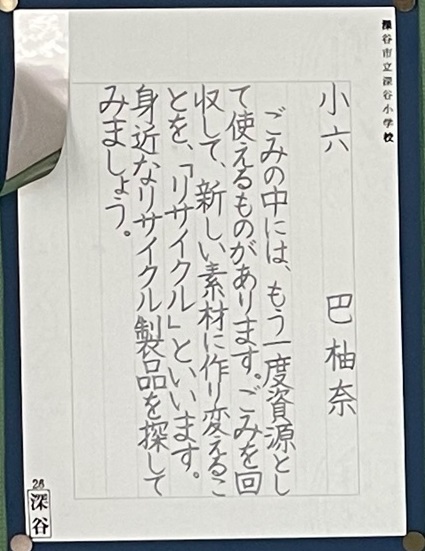 深谷市立深谷小学校
小六 巴柚奈
ごみの中には、もう一度資源とし
て使えるものがあります。ごみを回
収して、新しい素材に作り変えるこ
とを、「リサイクル」といいます。
身近なリサイクル製品を探して
みましょう。
26
深谷